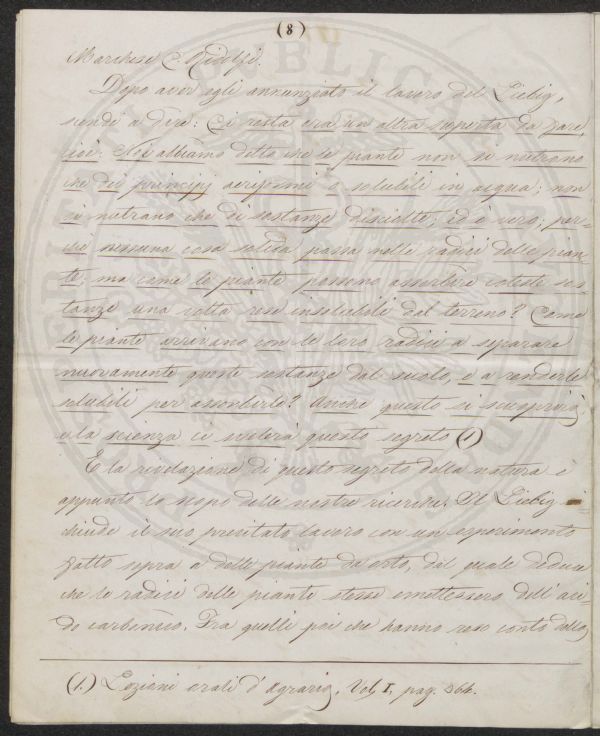 (8)
Marchese C. Ridolfi.
Dopo aver egli annunziato il lavoro del Liebig,
scende a dire: Ci resta era un altra scoperta da fare,
cioè: Noi abbiamo detto che le piante non si nutrono
che dei principj aeriformi o solubili in acqua; non
si nutrano che di sostanze disciolte; ed è vero; per-
chè nessuna cosa solida passa nelle radici delle pian-
te; ma come le piante possono assorbire coteste sos-
tanze una volta rese insolubili dal terreno? Come
le piante arrivano con le loro radici a separare
nuovamente queste sostanze dal suolo, e a renderle
solubili per assorbirle? Anche questo si scuoprirà
e la scienza ci svelerà questo segreto (1)
E la rivelazione di questo segreto della natura è
appunto lo scopo delle nostre ricerche. Il Liebig
chiude il suo precitato lavoro con un esperimento
fatto sopra a delle piante da orto, dal quale deduce
che le radici delle piante stesse emettessero dell'aci-
do carbonico. Fra quelli poi che hanno reso conto dello
(1.) Lezioni orali d'Agraria, Vol. I, pag. 364.